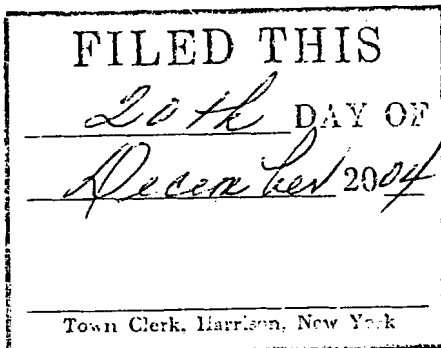 FILED THIS
20th DAY OF
December 2004
Town Clerk, Harrison, New York